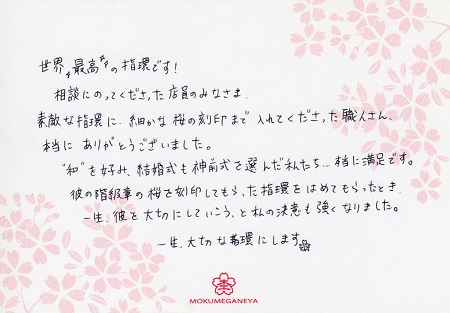 世界で最高の指環です!
相談にのってくださった店員のみなさま
素敵な指環に、細かな桜の刻印まで入れてくださった職人さん、
本当にありがとうございました。
"和"を好み、結婚式も神前式を選んだ私たち…本当に満足です。
彼の階級章の桜を刻印してもらった指環をはめてもらったとき、
一生、彼を大切にしていこう、と私の決意も強くなりました。
一生、大切な指環にします
MOKUMEGANEYA